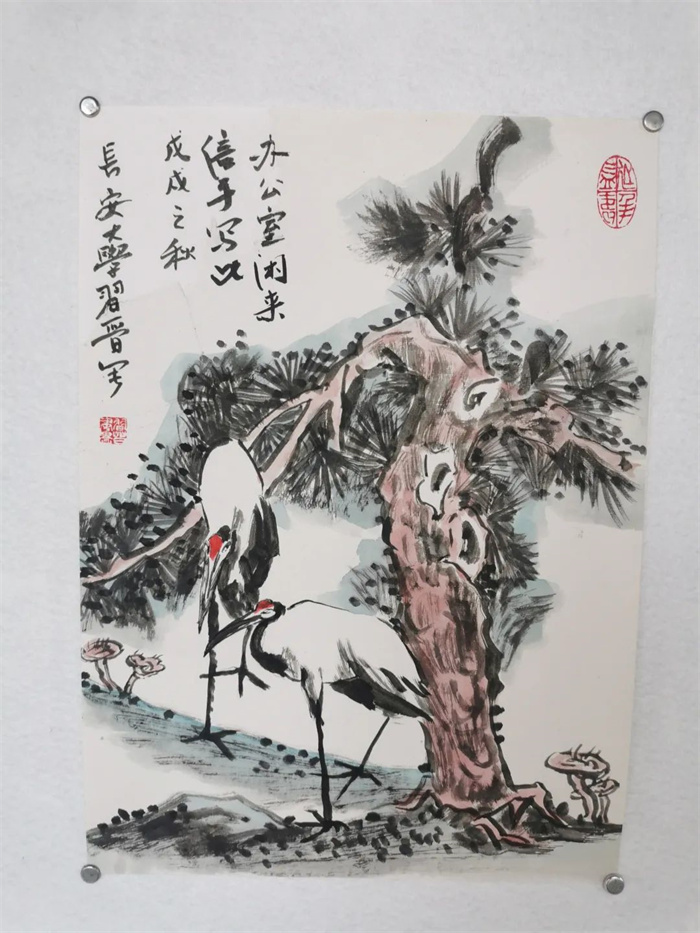 办公室闲来
信手写以
戊戌之秋
長安大學習晋军